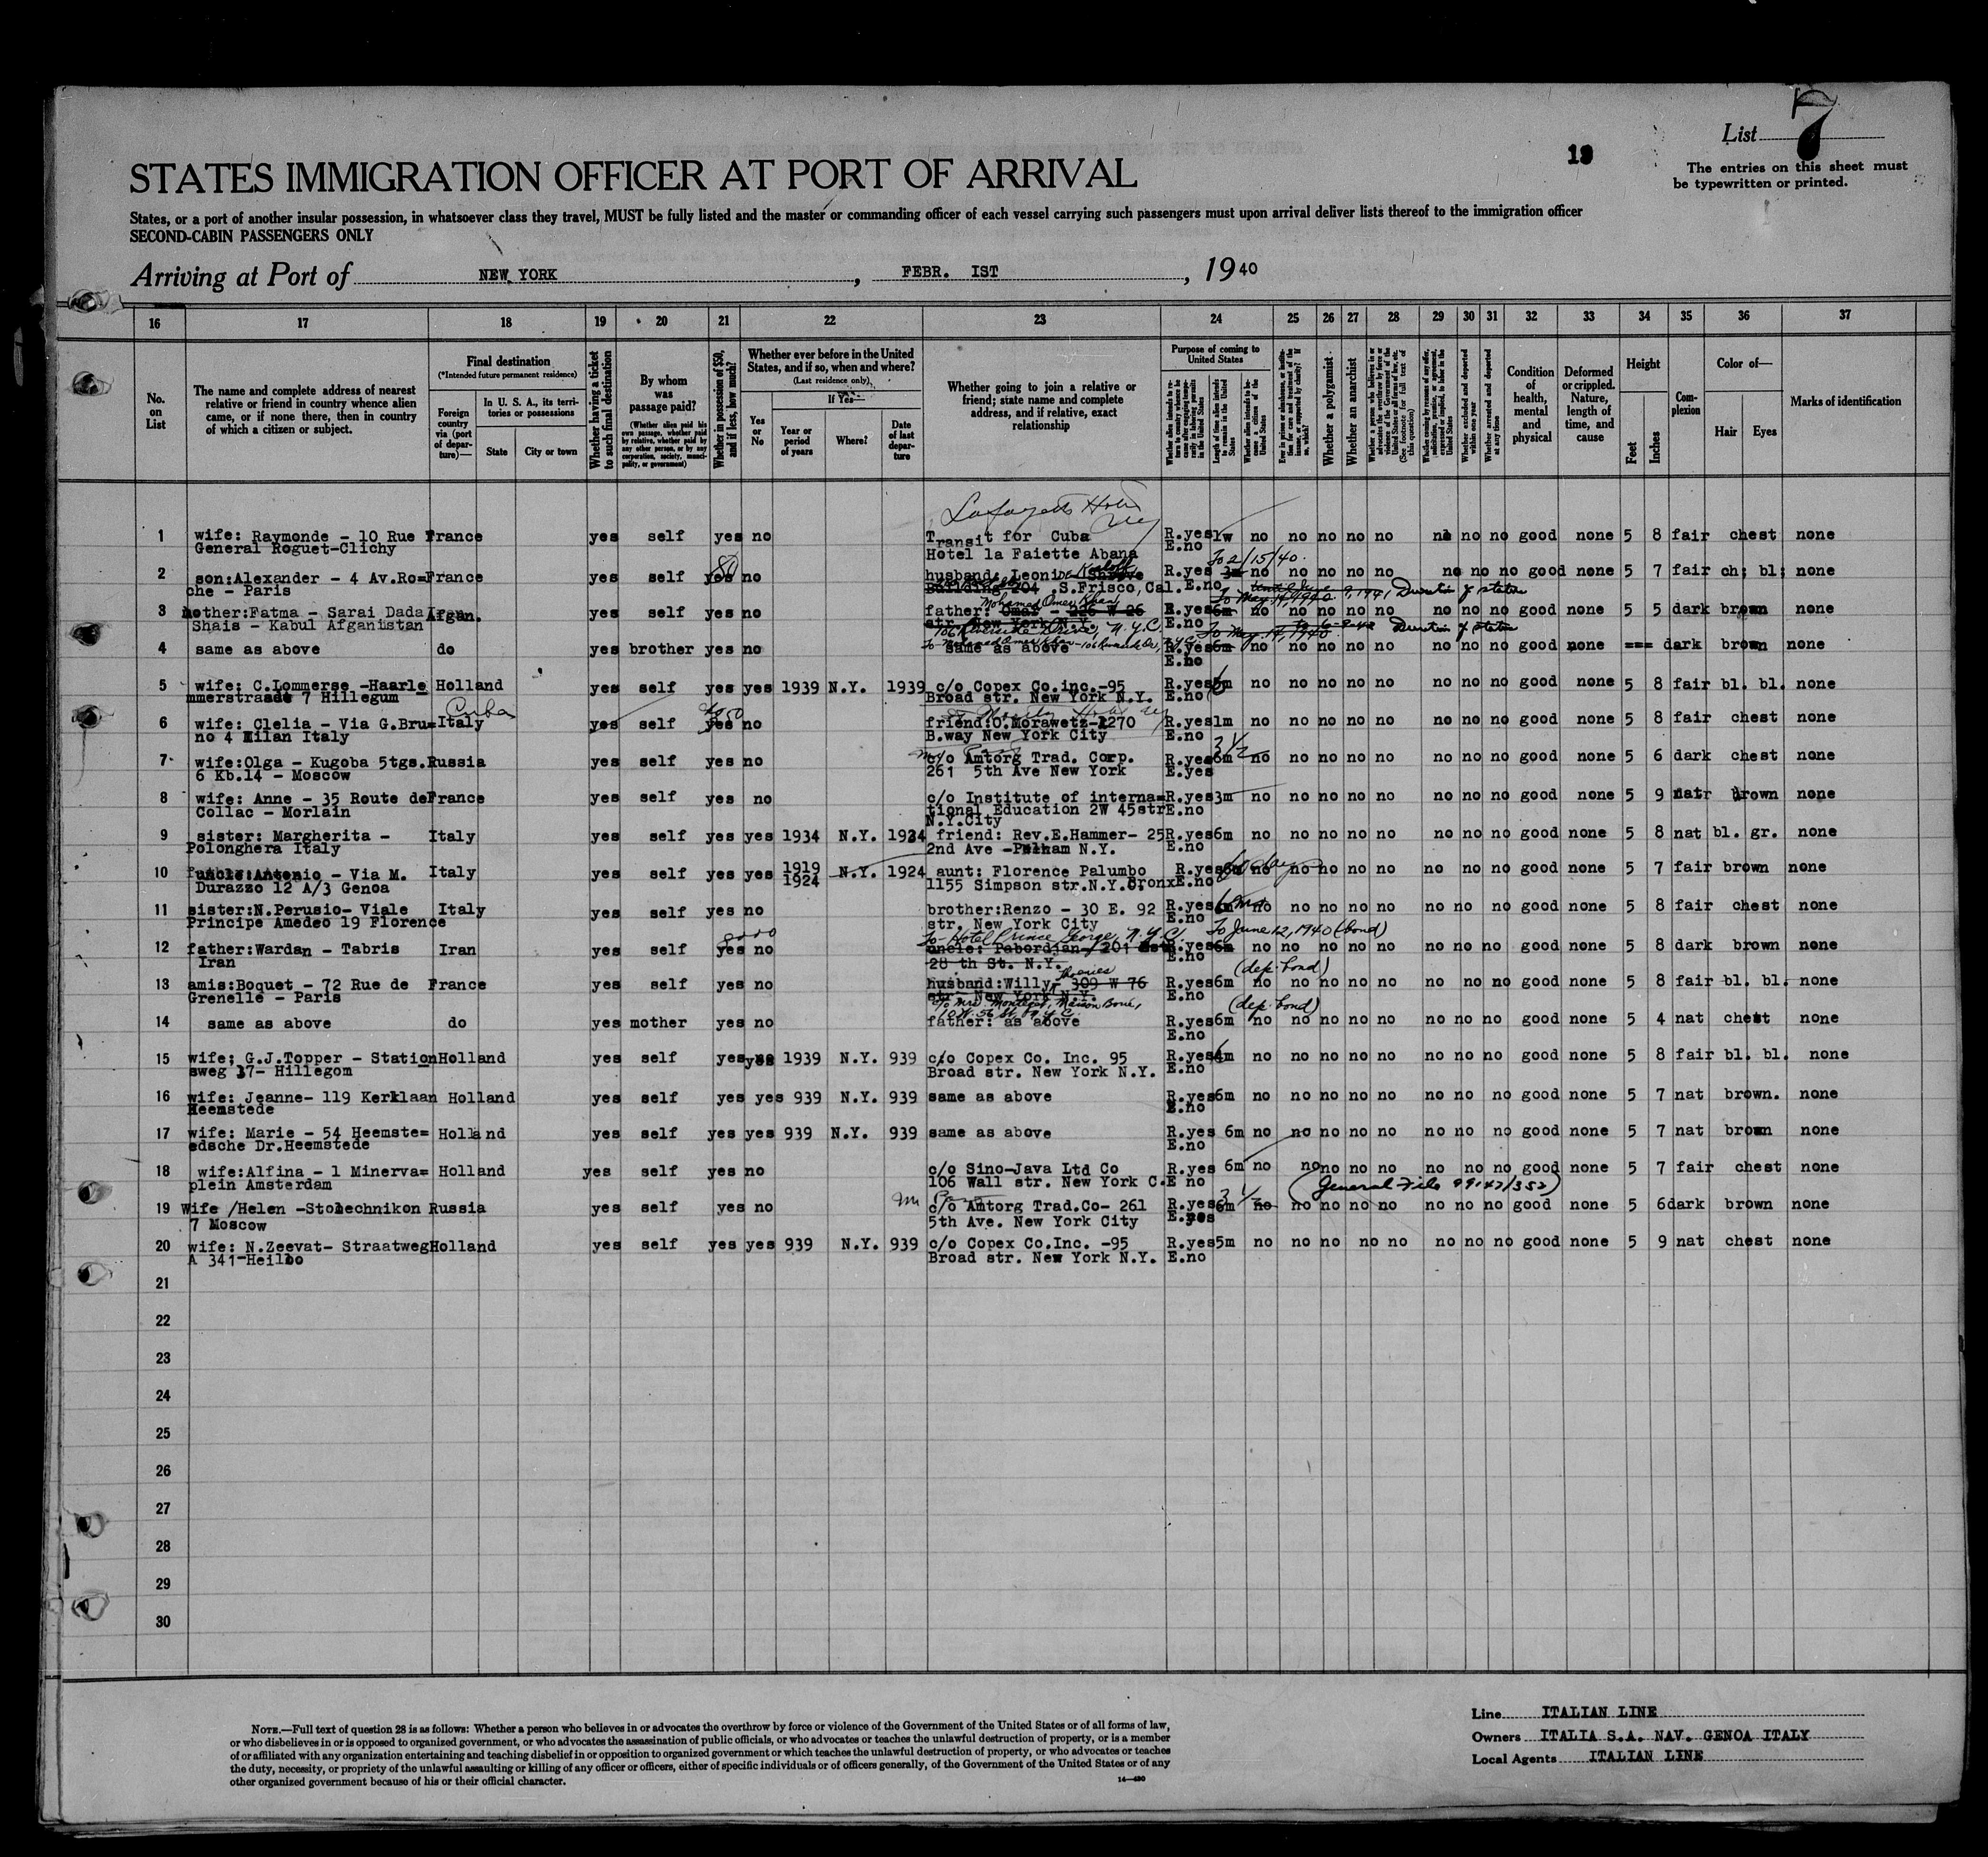 List 7
19
The entries on this sheet must
be typewritten or printed.
STATES IMMIGRATION OFFICER AT PORT OF ARRIVAL
States, or a port of another insular possession, in whatsoever class they travel, MUST be fully listed and the master or commanding officer of each vessel carrying such passengers must upon arrival deliver lists thereof to the immigration officer
SECOND-CABIN PASSENGERS ONLY
Arriving at Port of NEW YORK, FEBR. IST, 1940
16 17 18 19 20 21 22 23 24 25 26 27 28 29 30 31 32 33 34 35 36 37
No. on List
The name and complete address of nearest relative or friend in country whence alien came, or if none there, then in country of which a citizen or subject.
Final destination
(*Intended future permanent residence)
Foreign country via (port of departure)—
In U. S. A., its territories or possessions
State
City or town
Whether having a ticket to such final destination
By whom was passage paid?
(Whether alien paid his own passage, whether paid by relative, whether paid by any other person, or by any corporation, society, municipality, or government)
Whether in possession of $50, and if less, how much?
Whether ever before in the United States, and if so, when and where?
(Last residence only)
Yes or No
If Yes—
Year or period of years
Where?
Date of last departure
Whether going to join a relative or friend; state name and complete address, and if relative, exact relationship
Purpose of coming to United States
Length of time alien intends to remain in the United States
Whether alien intends to become a citizen of the United States
Whether a polygamist
Whether an anarchist
(See footnote for full text of this question)
Whether excluded and deported within one year
Whether arrested and deported at any time
Condition of health, mental and physical
Deformed or crippled. Nature, length of time, and cause
Height
Feet
Inches
Complexion
Color of—
Hair
Eyes
Marks of identification
Lafayette Hotel
1 wife: Raymonde - 10 Rue France yes self yes no Transit for Cuba R.yes 1w no no no no no no no no good none 5 8 fair chest none
General Roguet-Clichy Hotel la Faiette Abana E.no
To 2/15/40
2 son:Alexander - 4 Av.Ro= France yes self yes no husband: Leonid R.yes 3m no no no no no no no no good none 5 7 fair ch; bl; none
che - Paris Building 204 .S.Frisco,Cal. E.no
Duration of status
Mohamed Omer Khan
3 mother:Fatma - Sarai Dada Afgan. yes self yes no father: Omar - 226 W 26 R.yes 6m no no no no no no no no good none 5 5 dark brown none
Shais - Kabul Afganistan str. New York N.Y. E.no
106 Riverside Drive, N.Y.C. To May 14, 1940 Duration of status
4 same as above do yes brother yes no same as above R.yes 6m no no no no no no no no good none === dark brown none
E.no
5 wife: C.Lommerse -Haarle Holland yes self yes yes 1939 N.Y. 1939 c/o Copex Co.inc.-95 R.yes m no no no no no no no no good none 5 8 fair bl. bl. none
mmerstraade 7 Hillegum Broad str. New York N.Y. E.no
Cuba
6 wife: Clelia - Via G.Bru= Italy yes self yes no friend:O.Morawetz-1270 R.yes 1m no no no no no no no no good none 5 8 fair chest none
no 4 Milan Italy B.way New York City E.no
7 wife:Olga - Kugoba 5tgs. Russia yes self yes no c/o Amtorg Trad. Corp. R.yes 6m no no no no no no no no good none 5 6 dark chest none
6 Kb.14 - Moscow 261 5th Ave New York E.yes
8 wife: Anne - 35 Route de France yes self yes no c/o Institute of interna= R.yes 3m no no no no no no no no good none 5 9 natr brown none
Collac - Morlain tional Education 2W 45str E.no
N.Y.City
9 sister: Margherita - Italy yes self yes yes 1934 N.Y. 1934 friend: Rev.E.Hammer- 25 R.yes 6m no no no no no no no no good none 5 8 nat bl. gr. none
Polonghera Italy 2nd Ave -Pelham N.Y. E.no
10 uncle:Antonio - Via M. Italy yes self yes yes 1919 1924 N.Y. 1924 aunt: Florence Palumbo R.yes 60 days no no no no no no no no good none 5 7 fair brown none
Durazzo 12 A/3 Genoa 1155 Simpson str.N.Y.Bronx E.no
11 sister:N.Perusio- Viale Italy yes self yes no brother:Renzo - 30 E. 92 R.yes 6m no no no no no no no no good none 5 8 fair chest none
Principe Amedeo 19 Florence str. New York City E.no
To-Hotel Prince George, N.Y.C. To June 12, 1940 (bond)
12 father:Wardan - Tabris Iran yes self yes no uncle: Pabordjan- 201 East R.yes 6m no no no no no no no no good none 5 8 dark brown none
Iran 28 th St. N.Y. E.no
(dep. bond)
13 amis:Boquet - 72 Rue de France yes self yes no husband:Willy- 309 W 76 R.yes 6m no no no no no no no no good none 5 8 fair bl. bl. none
Grenelle - Paris str- New York N.Y. E.no
(dep. bond)
14 same as above do yes mother yes no father: as above R.yes 6m no no no no no no no no good none 5 4 nat chest none
E.no
15 wife; G.J.Topper - Station Holland yes self yes yes 1939 N.Y. 939 c/o Copex Co. Inc. 95 R.yes m no no no no no no no no good none 5 8 fair bl. bl. none
sweg 37- Hillegom Broad str. New York N.Y. E.no
16 wife: Jeanne- 119 Kerklaan Holland yes self yes yes 939 N.Y. 939 same as above R.yes 6m no no no no no no no no good none 5 7 nat brown. none
Heemstede E.no
17 wife: Marie - 54 Heemste= Holland yes self yes yes 939 N.Y. 939 same as above R.yes 6m no no no no no no no no good none 5 7 nat brown none
edsche Dr.Heemstede E.no
18 wife:Alfina - 1 Minerva= Holland yes self yes no c/o Sino-Java Ltd Co R.yes 6m no no no no no no no no good none 5 7 fair chest none
plein Amsterdam 106 Wall str. New York C. E no
19 Wife /Helen -Stolechnikon Russia yes self yes no c/o Amtorg Trad.Co- 261 R.yes 6m no no no no no no no no good none 5 6 dark brown none
7 Moscow 5th Ave. New York City E.yes
20 wife: N.Zeevat- Straatweg Holland yes self yes yes 939 N.Y. 939 c/o Copex Co.Inc. -95 R.yes 5m no no no no no no no no good none 5 9 nat chest none
A 341-Heilbo Broad str. New York N.Y. E.no
21
22
23
24
25
26
27
28
29
30
NOTE.—Full text of question 28 is as follows: Whether a person who believes in or advocates the overthrow by force or violence of the Government of the United States or of all forms of law,
or who disbelieves in or is opposed to organized government, or who advocates the assassination of public officials, or who advocates or teaches the unlawful destruction of property, or is a member
of or affiliated with any organization entertaining and teaching disbelief in or opposition to organized government or which teaches the unlawful destruction of property, or who advocates or teaches
the duty, necessity, or propriety of the unlawful assaulting or killing of any officer or officers, either of specific individuals or of officers generally, of the Government of the United States or of any
other organized government because of his or their official character.
14—430
Line ITALIAN LINE
Owners ITALIA S.A. NAV. GENOA ITALY
Local Agents ITALIAN LINE